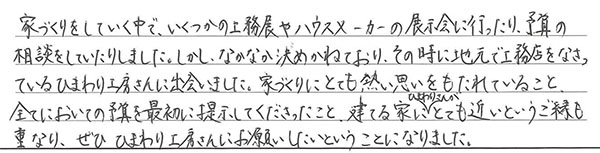 家づくりをしていく中で、いくつかの工務展やハウスメーカーの展示会に行ったり、予算の
相談をしていたりしました。しかし、なかなか決めかねており、その時に地元で工務店をなさっ
ているひまわり工房さんに出会いました。家づくりにとても熱い思いをもたれていること、
全てにおいての予算を最初に提示してくださったこと、建てる家がひまわりさんととても近いというご縁も
重なり、ぜひ ひまわり工房さんにお願いしたいということになりました。